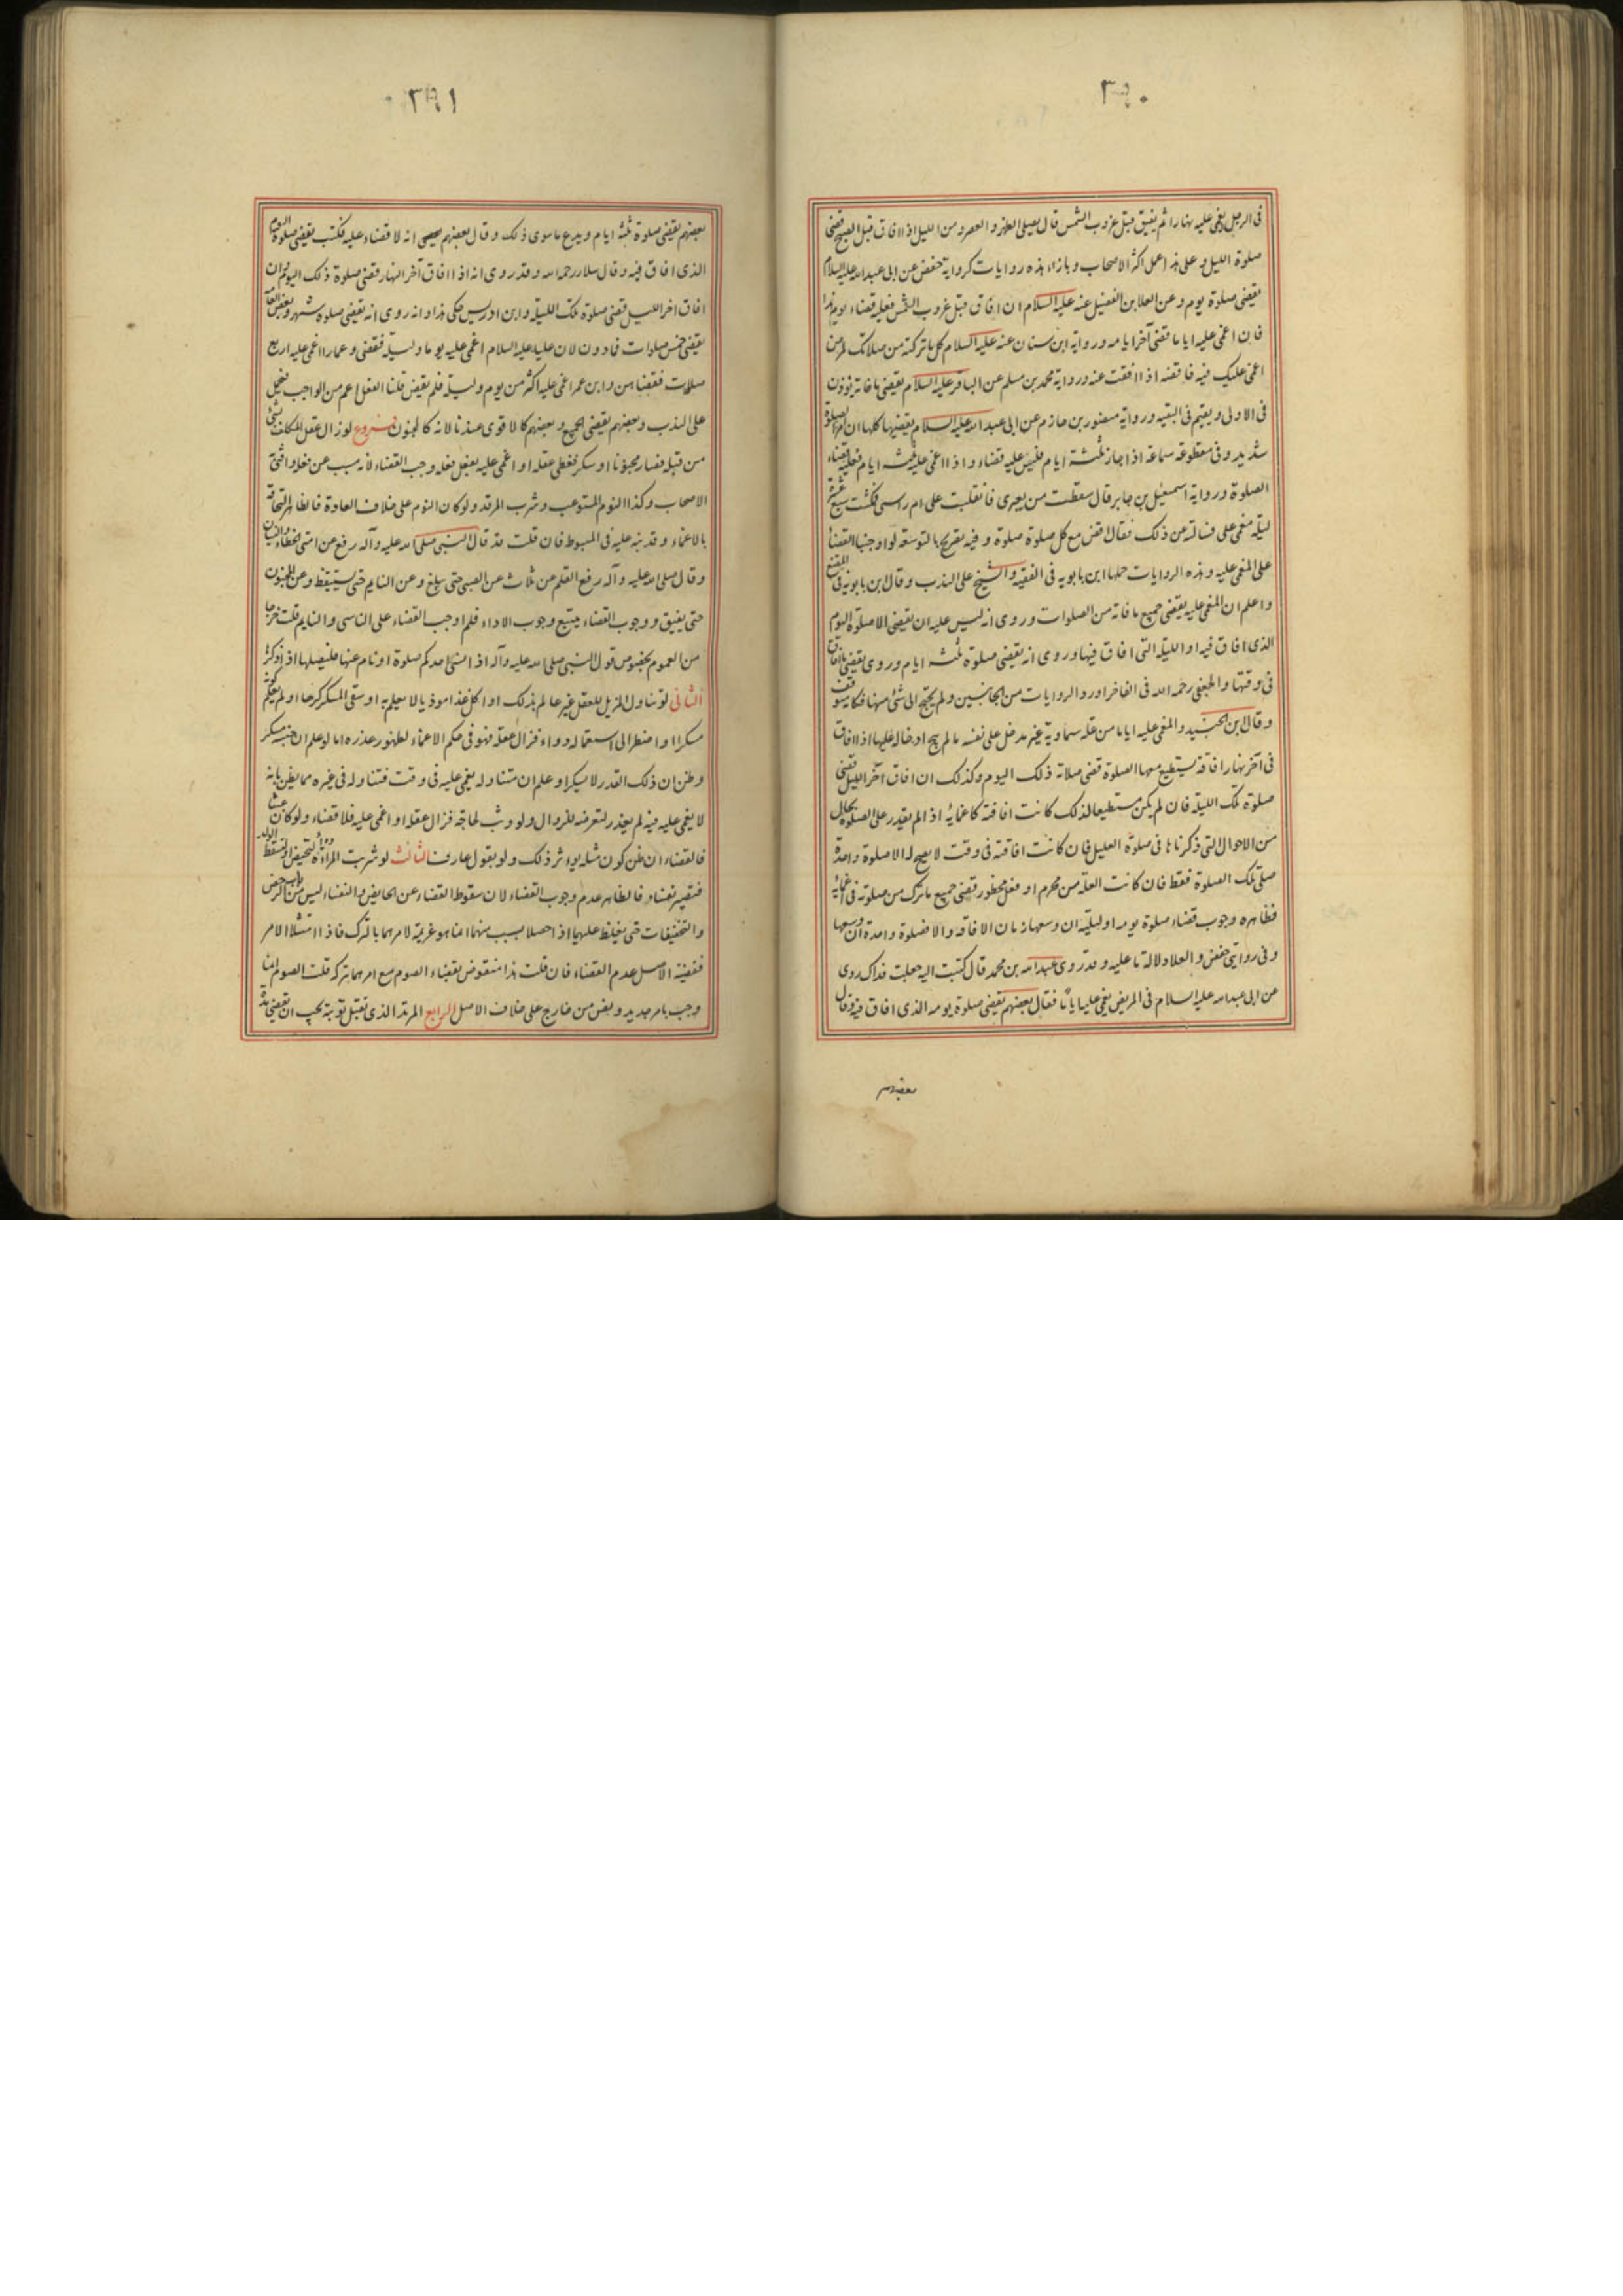 ٣٩٠
فى الرجل يغمى عليه نهارا ثم يفيق قبل غروب الشمس قال يصلى الظهر و العصر و من الليل اذا افاق قبل الصبح قضى
صلوة الليل و على هذا عمل اكثر الاصحاب و بازاء هذه روايات كرواية حفص عن ابى عبد الله عليه السلام
يقضى صلوة يوم و عن العلا بن الفضيل عنه عليه السلام ان افاق قبل غروب الشمس فعليه قضاء يومه هذا
فان اغمى عليه اياما قضى آخر ايامه و رواية ابن سنان عنه عليه السلام كل ما تركته من صلاتك لمرض
اغمى عليك فيه فاقضه اذا افقت عنه و رواية محمد بن مسلم عن الباقر عليه السلام يقضى ما فاته يوذن
فى الاولى و يقيم فى البقيه و رواية منصور بن حازم عن ابى عبد الله عليه السلام يقضيها كلها ان امر الصلوة
شديد و فى مقطوعه سماعة اذا جاز ثلثة ايام فليس عليه قضاء و اذا اغمى عليه ثلثه ايام فعليه قضاء
الصلوة و رواية اسمعيل بن جابر قال سقطت من بعيرى فانقلبت على ام راسى فمكثت سبع عشرة
ليلة مغمى على فسالته عن ذلك فقال اقض مع كل صلوة صلوة و فيه تصريح بالتوسعة لو اوجبنا القضاء
على المغمى عليه و هذه الروايات حملها ابن بابويه فى الفقيه و الشيخ على الندب و قال ابن بابويه فى المقنع
و اعلم ان المغمى عليه يقضى جميع ما فاته من الصلوات و روى انه ليس عليه ان يقضى الا صلوة اليوم
الذى افاق فيه او الليلة التى افاق فيها و روى انه يقضى صلوة ثلثه ايام و روى يقضى ما افاق
فى وقتها و الجعفى رحمه الله فى الفاخر اورد الروايات من الجانبين و لم يحتج الى شئ منها فكانه متوقف
و قال ابن الجنيد و المغمى عليه اياما من علة سماوية غير مدخل على نفسه ما لم يبح ادخاله عليها اذا افاق
فى آخر نهار افاقة يستطيع معها الصلوة قضى صلاة ذلك اليوم و كذلك ان افاق آخر الليل قضى
صلوة تلك الليلة فان لم يكن مستطيعا لذلك كانت افاقته كاغمائه اذا لم يقدر على الصلوة بحال
من الاحوال التى ذكرناها فى صلوة العليل فان كانت افاقته فى وقت لا يصح له الا صلوة واحدة
صلى تلك الصلوة فقط فان كانت العلة من محرم او فعل محظور قضى جميع ما ترك من صلوته فى اغمائه
فظاهره وجوب قضاء صلوة يومه او ليلته ان وسعها زمان الافاقه و الا فصلوة واحدة ان وسعها
و فى روايتى حفص و العلا دلالة ما عليه و قد روى عبد الله بن محمد قال كتبت اليه جعلت فداك روى
عن ابى عبد الله عليه السلام فى المريض يغمى عليه اياما فقال بعضهم يقضى صلوة يومه الذى افاق فيه و قال
بعضهم
٣٩١
بعضهم يقضى صلوة ثلثه ايام و يدع ما سوى ذلك و قال بعضهم انه لا قضاء عليه فكتب يقضى صلوة اليوم
الذى افاق فيه و قال سلار رحمه الله و قد روى انه اذا افاق آخر النهار قضى صلوة ذلك اليوم و ان
افاق اخر الليل قضى صلوة تلك الليلة و ابن ادريس حكى هذا و انه روى انه يقضى صلوة شهر و بعض العامة
يقضى خمس صلوات فما دون لان عليا عليه السلام اغمى عليه يوما و ليلة فقضى و عمارا اغمى عليه اربع
صلات فقضاهن و ابن عمر اغمى عليه اكثر من يوم و ليلة فلم يقض قلنا الفعل اعم من الواجب فيحمل
على الندب و بعضهم يقضى الجميع و بعضهم كالاقوى عندنا لانه كالجنون فروع لو زال عقل المكلف بشئ
من قبله فصار مجنونا او سكر فغطى عقله او اغمى عليه بفعل فعله وجب القضاء لانه مسبب عن فعله و افتى
الاصحاب و كذا النوم المستوعب و شرب المرقد و لو كان النوم على خلاف العادة فالظاهر التحاقه
بالاغماء و قد نبه عليه فى المبسوط فان قلت قد قال النبى صلى الله عليه و آله رفع عن امتى الخطاء و النسيان
و قال صلى الله عليه و آله رفع القلم عن ثلاث عن الصبى حتى يبلغ و عن النايم حتى يستيقظ و عن المجنون
حتى يفيق و وجوب القضاء يتبع وجوب الاداء فلم اوجب القضاء على الناسى و النايم قلت خرجا
من العموم بخصوص قول النبى صلى الله عليه و آله اذا نسى احدكم صلوة او نام عنها فليصلها اذا ذكرها
الثانى لو تناول المزيل للعقل غير عالم بذلك او اكل غذا موذيا لا يعلم به او سقى المسكر كرها او لم يعلم كونه
مسكرا او اضطر الى استعماله دواء فزال عقله فهو فى حكم الاغماء لظهور عذره اما لو علم ان جنسه مسكر
و ظن ان ذلك القدر لا يسكر او علم ان تناوله يغمى عليه فى وقت فتناوله فى غيره مما يظن بانه
لا يغمى عليه فيه لم يعذر لتعرضه للزوال و لو وثب لحاجة فزال عقله او اغمى عليه فلا قضاء و لو كان عبثا
فالقضاء ان ظن كون مثله يؤثر ذلك و لو بقول عارف الثالث لو شربت المراة دواء لتحيض او لتسقط الولد
فتصير نفساء فالظاهر عدم وجوب القضاء لان سقوط القضاء عن الحايض و النفساء ليس من باب الرخص
و التخفيفات حتى يغلظ عليهما اذا حصلا بسبب منهما انما هو عزيمة لامرهما بالترك فاذا امتثلا الامر
فقضية الاصل عدم القضاء فان قلت هذا منقوض بقضاء الصوم مع امرهما بتركه قلت الصوم انما
وجب بامر جديد و نص من خارج على خلاف الاصل الرابع المرتد الذى تقبل توبته يجب ان يقضى